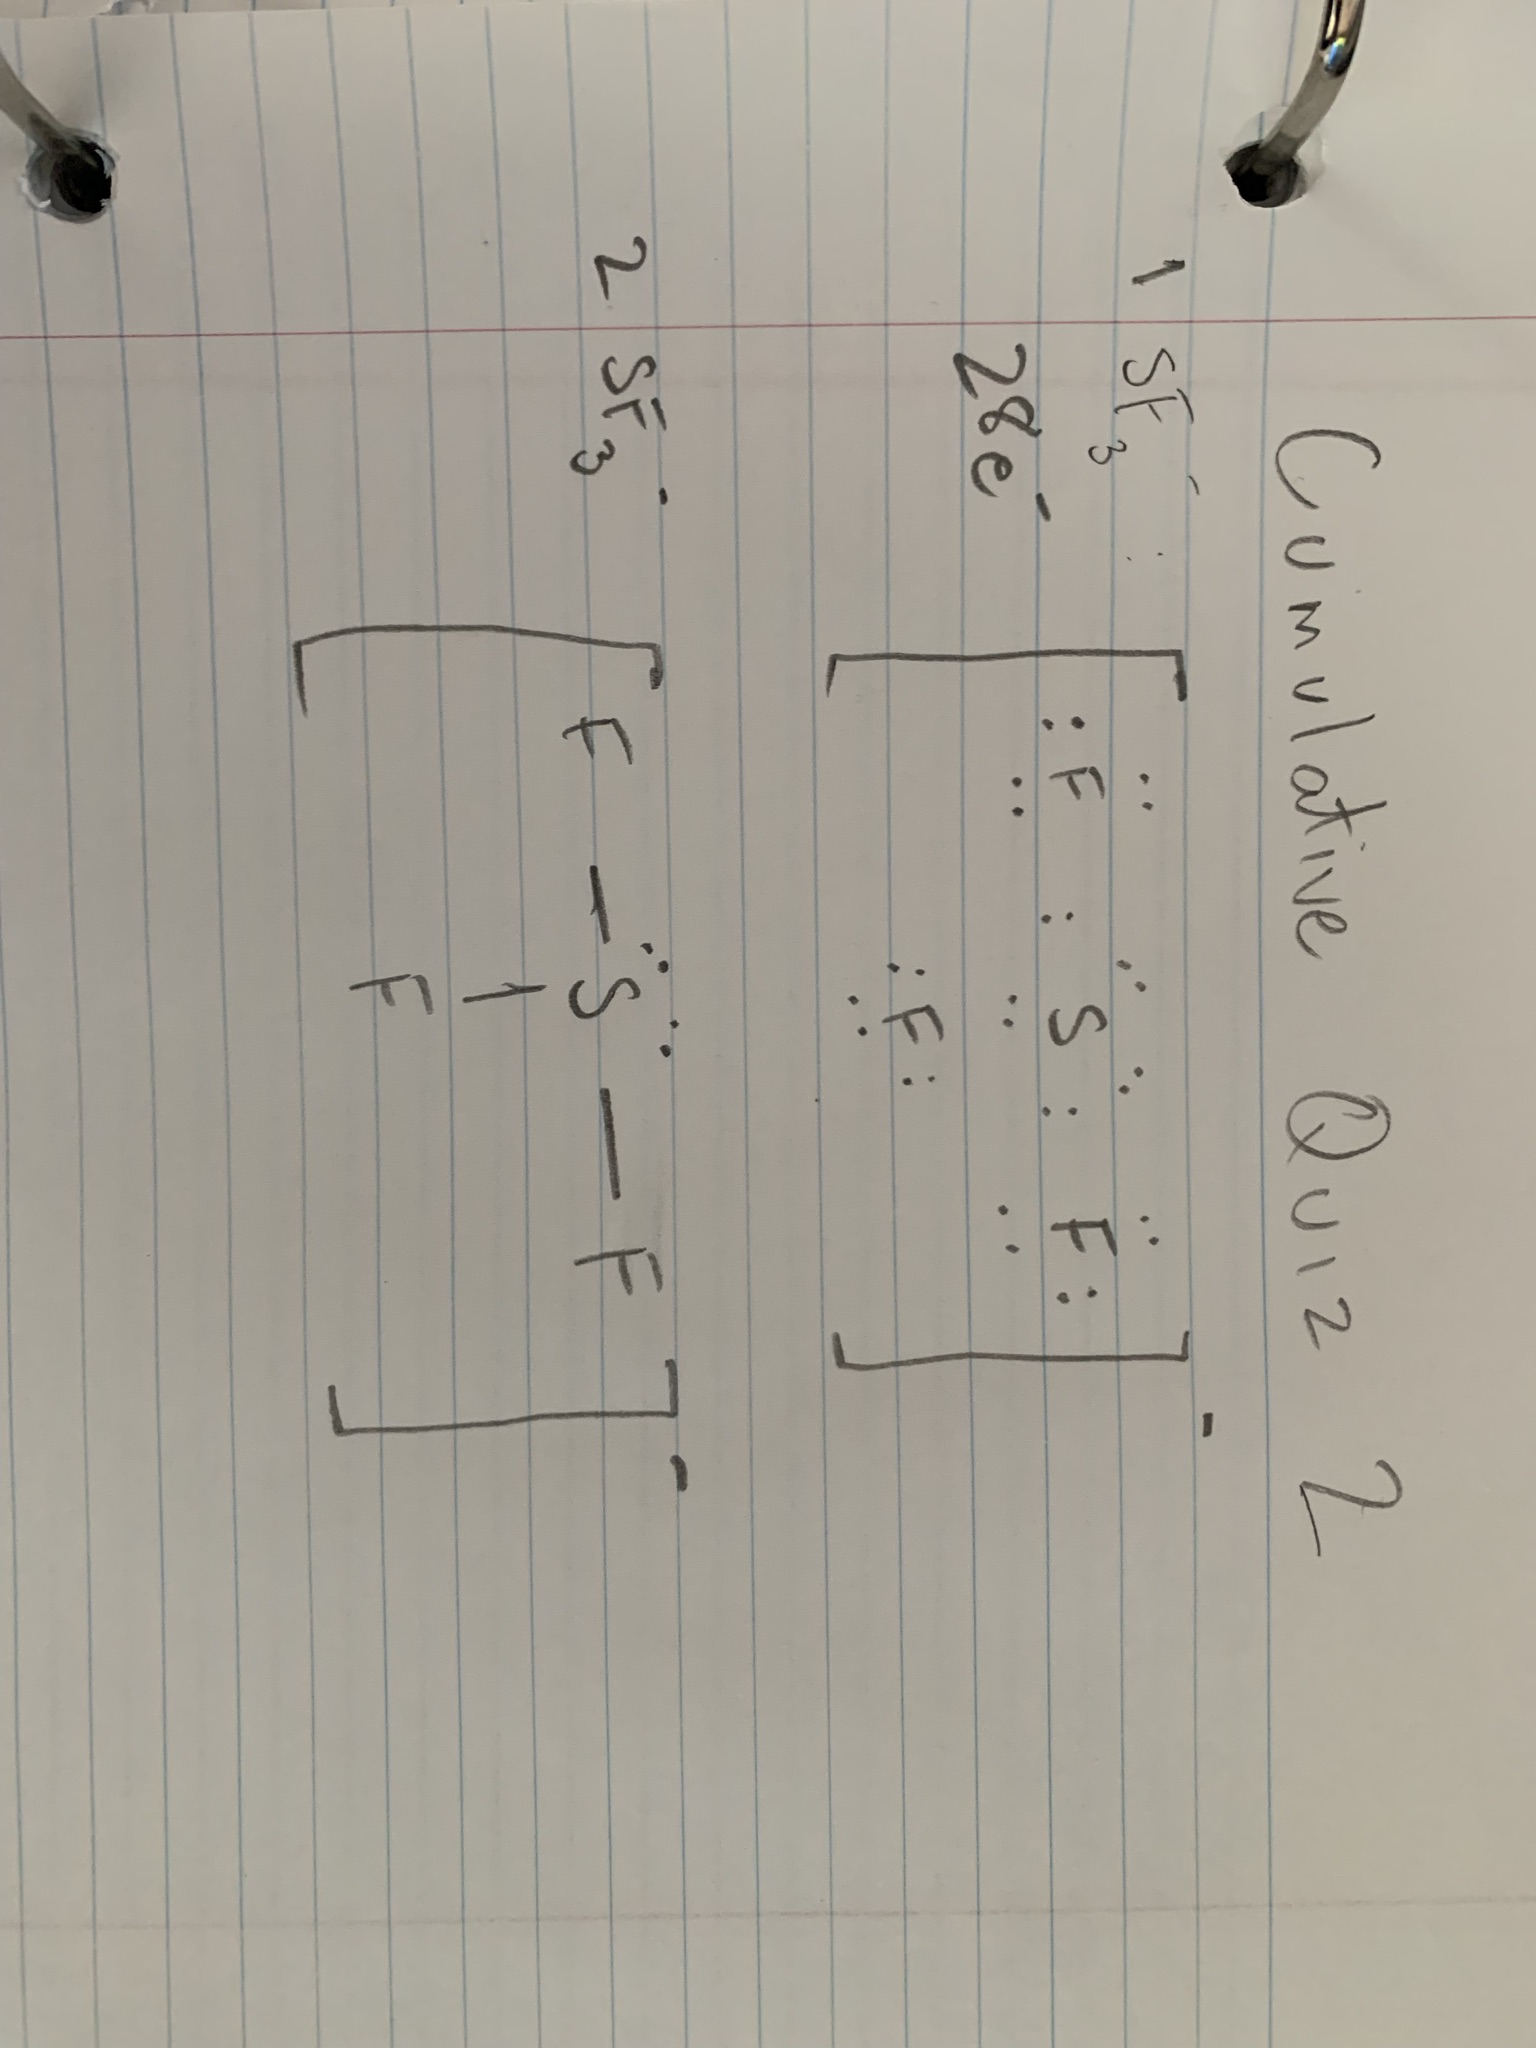 Cumulative Quiz 2
1 SF₃⁻
28e⁻
[:F̤̈ : S̤̈̈ : F̤̈:]⁻
:F̤:
2 SF₃⁻
[F — S̈̈ — F]⁻
|
F